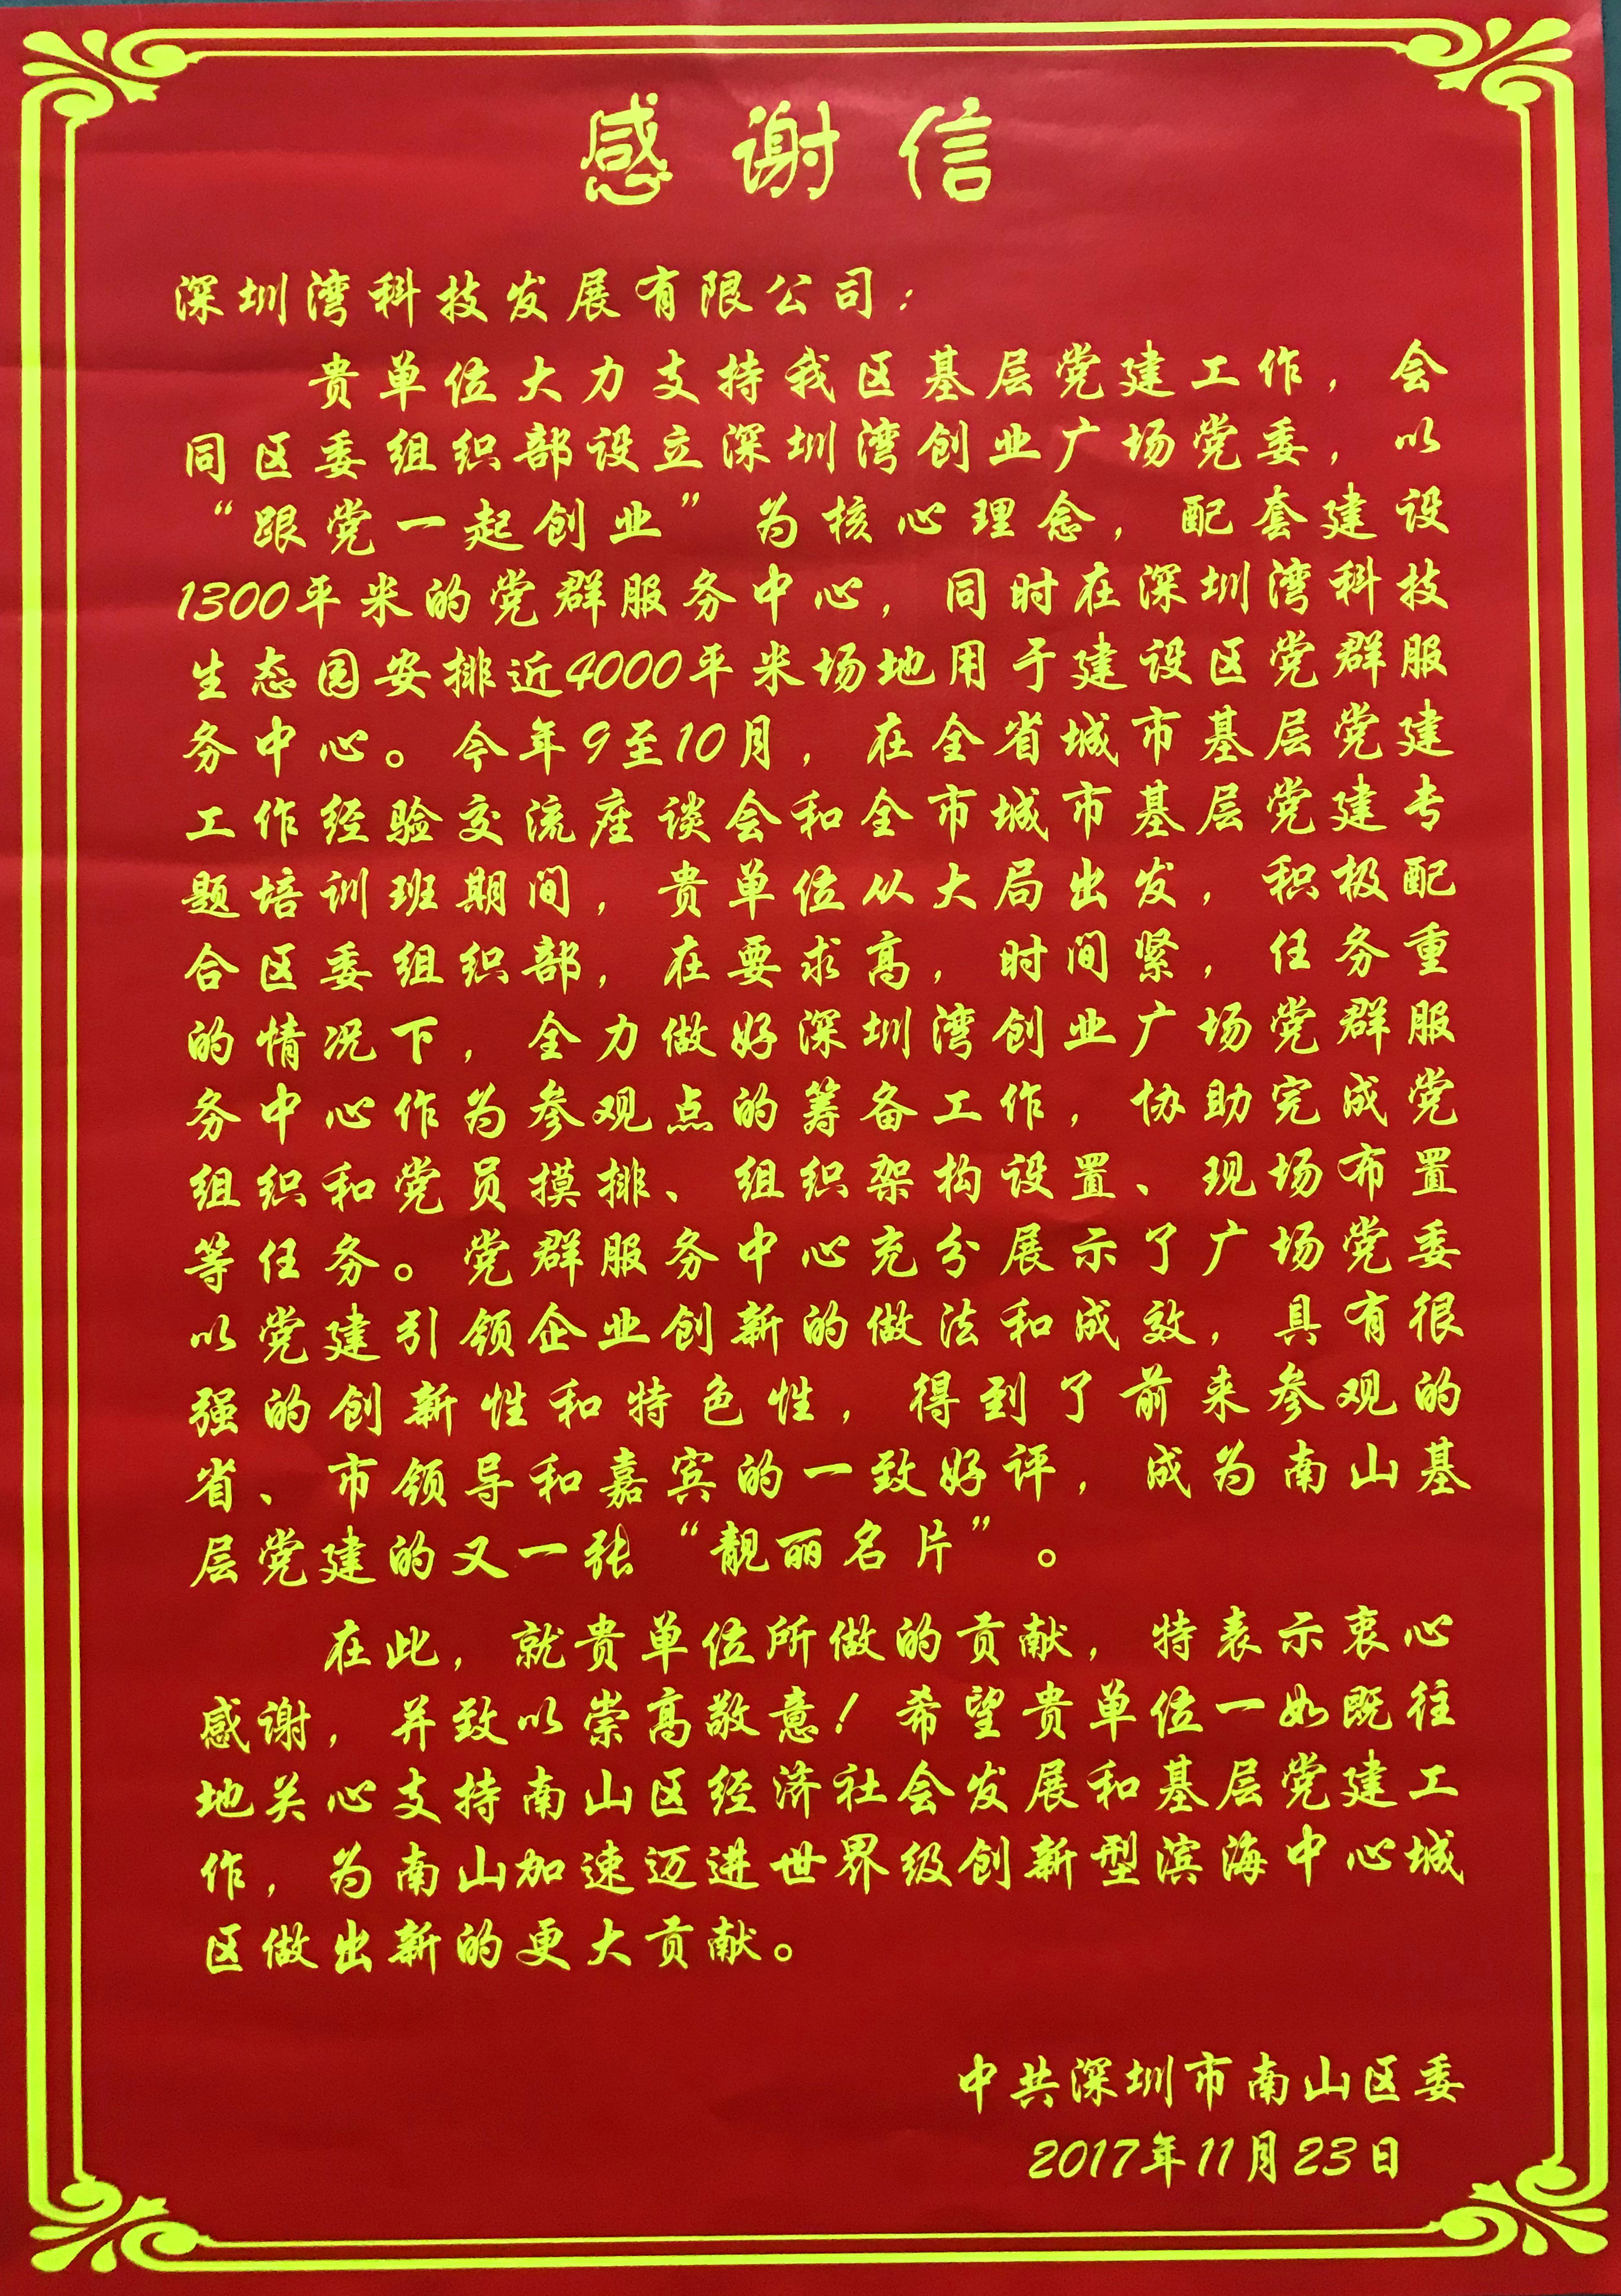 感谢信
深圳湾科技发展有限公司：
贵单位大力支持我区基层党建工作，会
同区委组织部设立深圳湾创业广场党委，以
“跟党一起创业”为核心理念，配套建设
1300平米的党群服务中心，同时在深圳湾科技
生态园安排近4000平米场地用于建设区党群服
务中心。今年9至10月，在全省城市基层党建
工作经验交流座谈会和全市城市基层党建专
题培训班期间，贵单位从大局出发，积极配
合区委组织部，在要求高，时间紧，任务重
的情况下，全力做好深圳湾创业广场党群服
务中心作为参观点的筹备工作，协助完成党
组织和党员摸排、组织架构设置、现场布置
等任务。党群服务中心充分展示了广场党委
以党建引领企业创新的做法和成效，具有很
强的创新性和特色性，得到了前来参观的
省、市领导和嘉宾的一致好评，成为南山基
层党建的又一张“靓丽名片”。
在此，就贵单位所做的贡献，特表示衷心
感谢，并致以崇高敬意！希望贵单位一如既往
地关心支持南山区经济社会发展和基层党建工
作，为南山加速迈进世界级创新型滨海中心城
区做出新的更大贡献。
中共深圳市南山区委
2017年11月23日